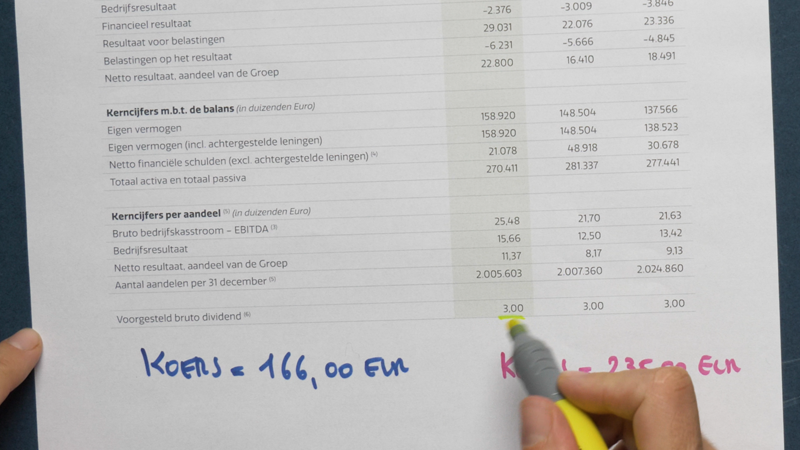 Bedrijfsresultaat
Financieel resultaat -2.376 -3.009 -3.846
Resultaat voor belastingen 29.031 22.076 23.336
Belastingen op het resultaat -6.231 -5.666 -4.845
Netto resultaat, aandeel van de Groep 22.800 16.410 18.491
Kerncijfers m.b.t. de balans (in duizenden Euro)
Eigen vermogen 158.920 148.504 137.566
Eigen vermogen (incl. achtergestelde leningen) 158.920 148.504 138.523
Netto financiële schulden (excl. achtergestelde leningen) (4) 21.078 48.918 30.678
Totaal activa en totaal passiva 270.411 281.337 277.441
Kerncijfers per aandeel (5) (in duizenden Euro)
Bruto bedrijfskasstroom – EBITDA (3) 25,48 21,70 21,63
Bedrijfsresultaat 15,66 12,50 13,42
Netto resultaat, aandeel van de Groep 11,37 8,17 9,13
Aantal aandelen per 31 december (5) 2.005.603 2.007.360 2.024.860
Voorgesteld bruto dividend (6) 3,00 3,00 3,00
KOERS = 166,00 EUR EUR